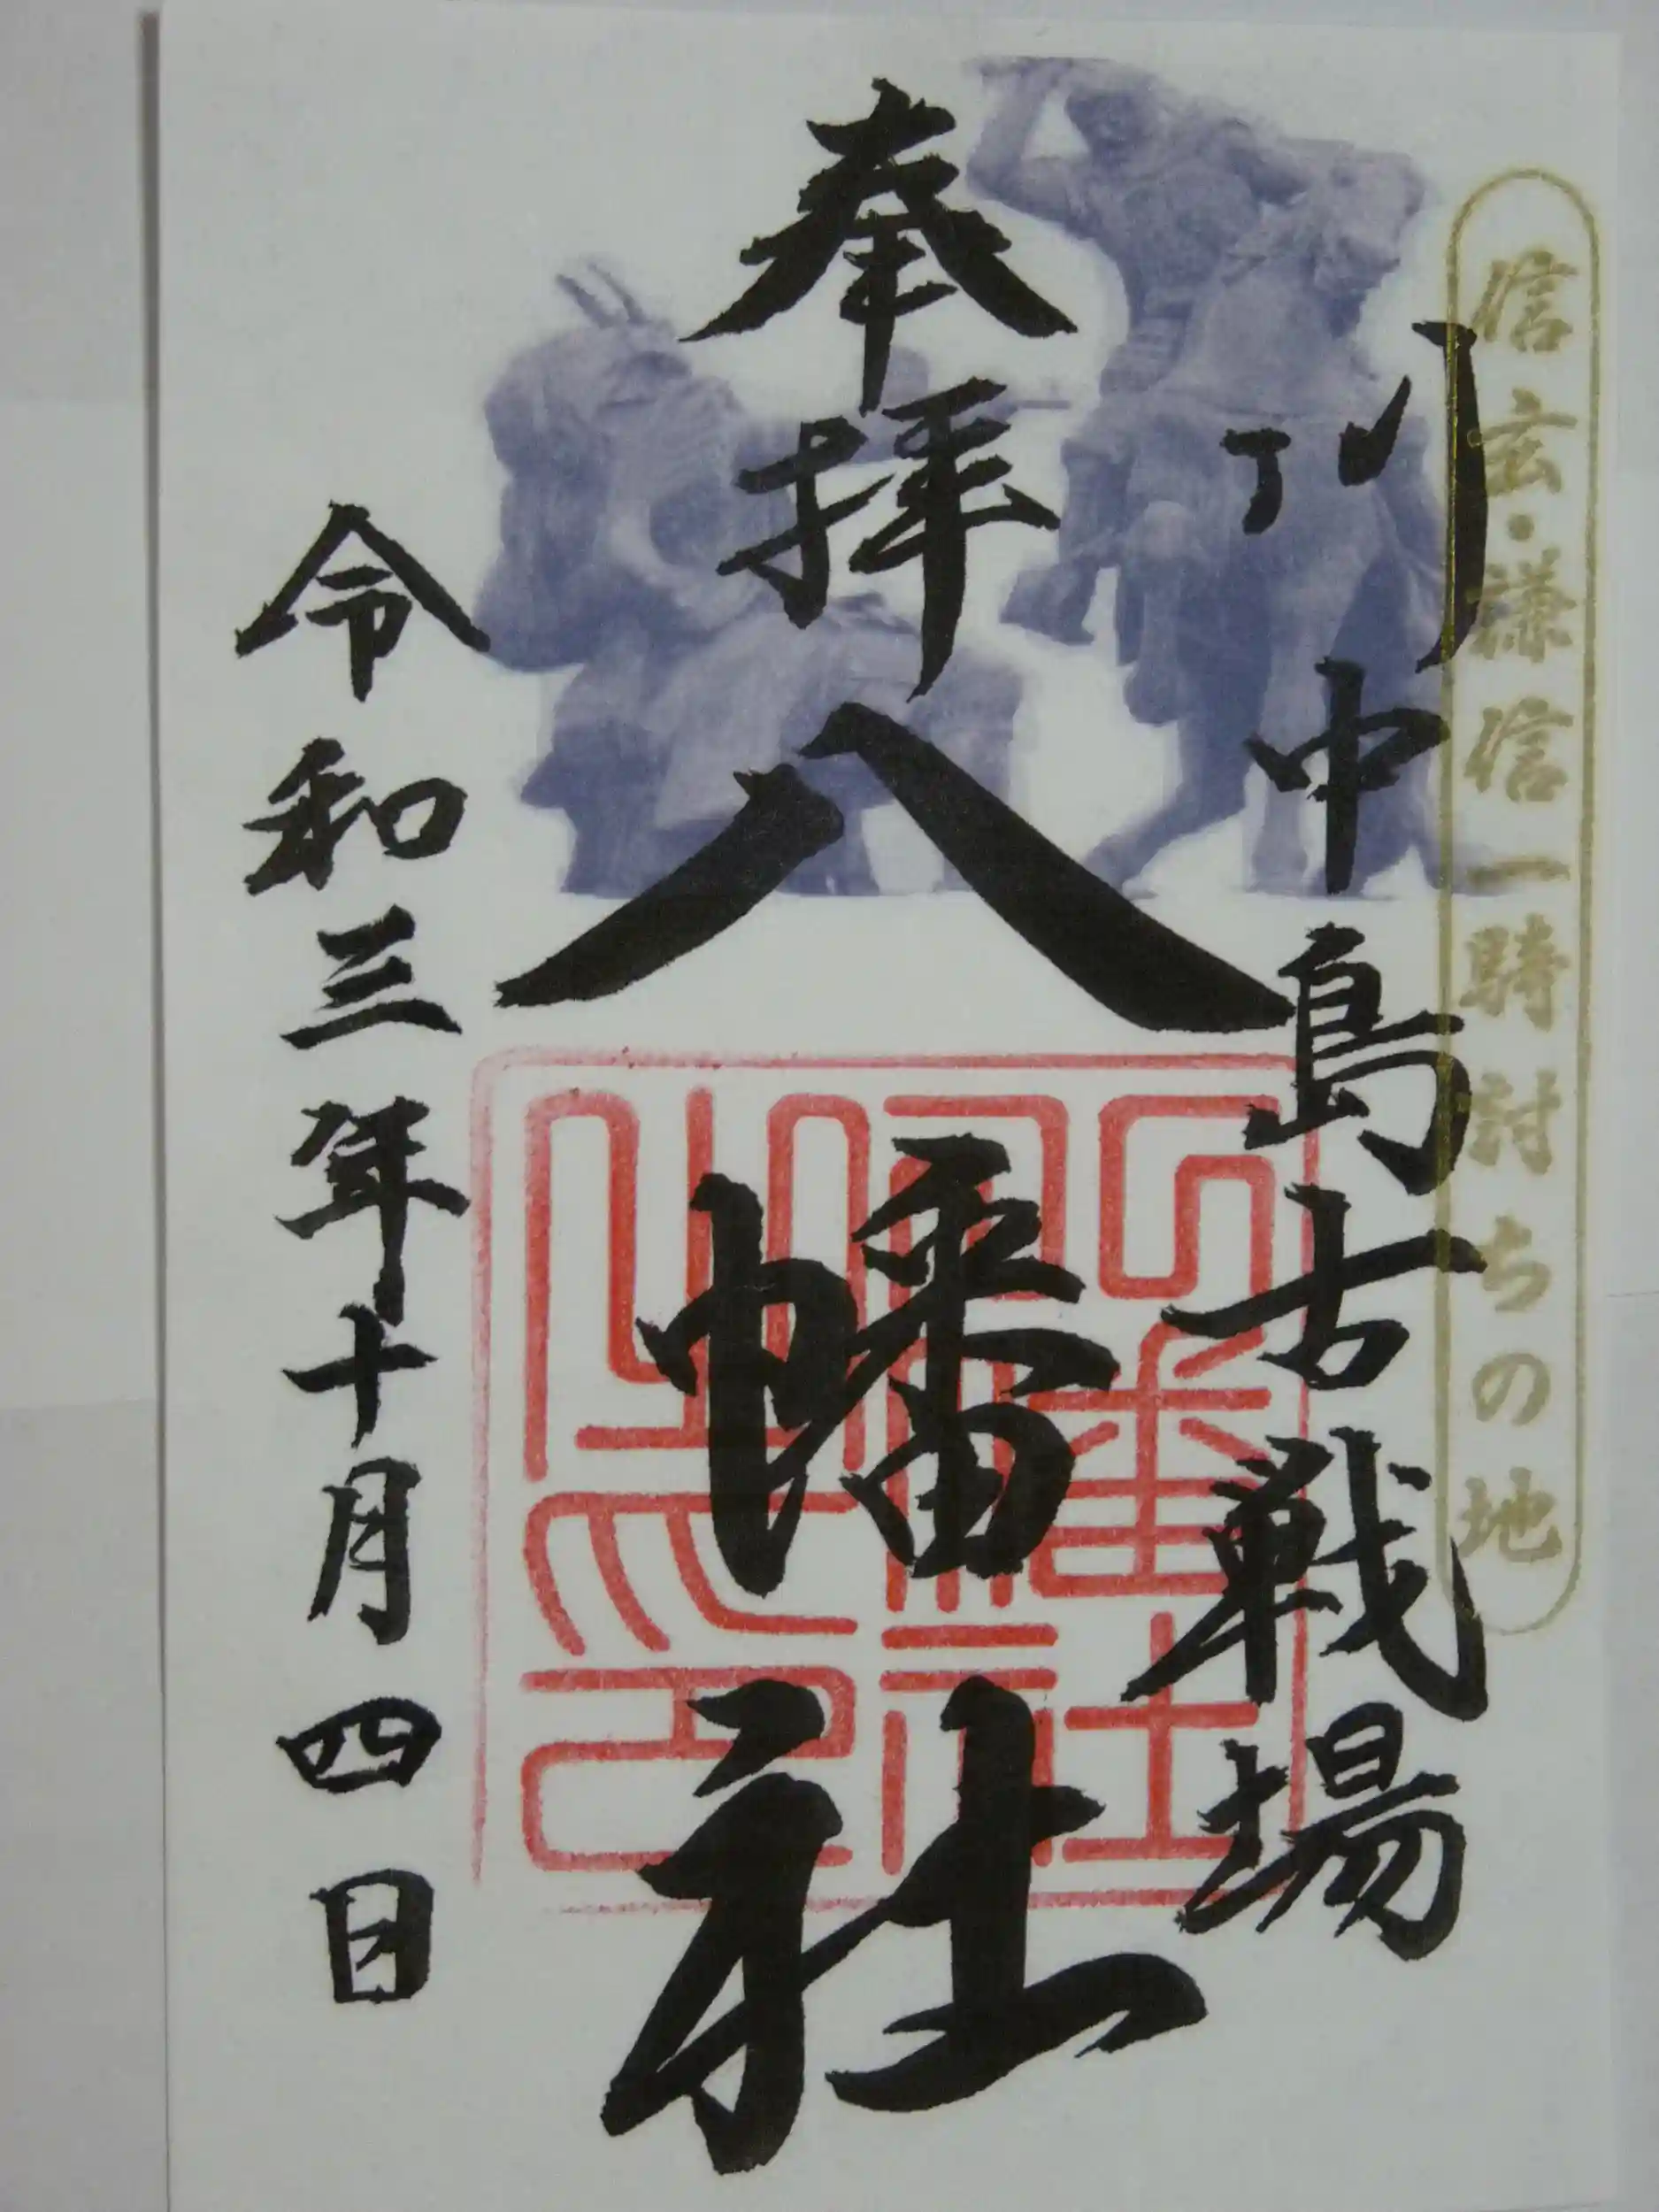 信玄・謙信一騎討ちの地
川中島古戦場
奉拝
八幡社
令和三年十月四日